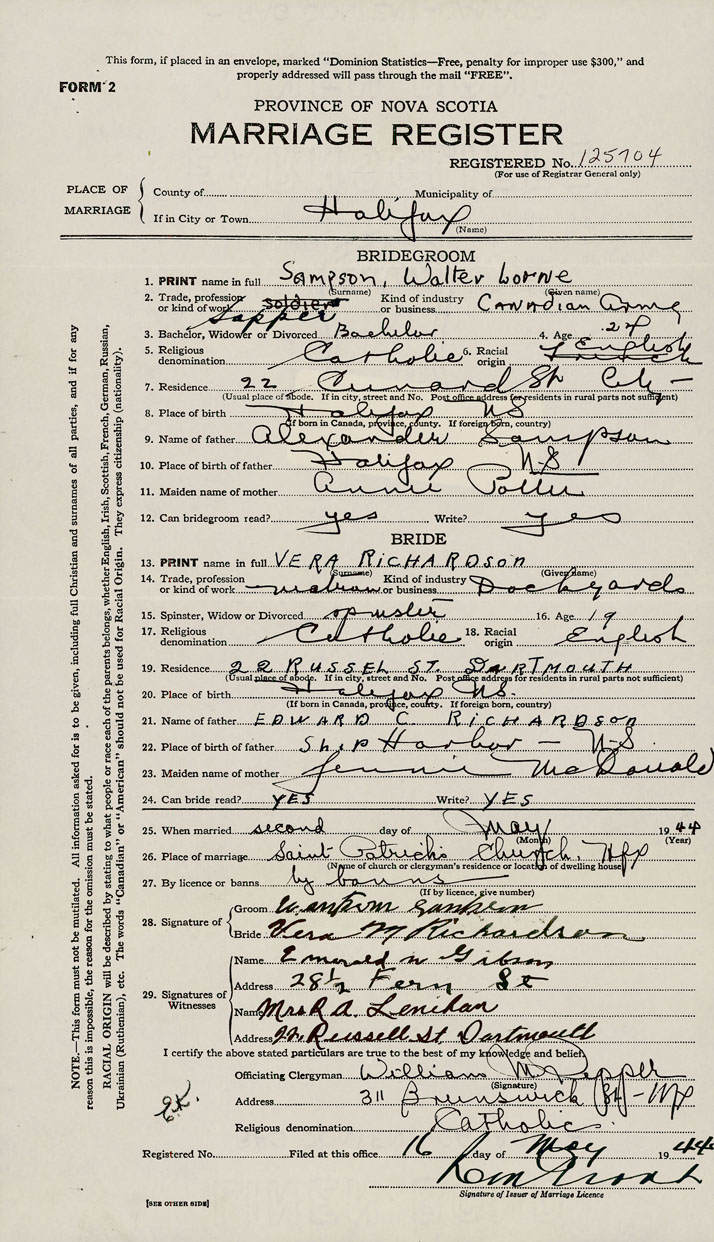 This form, if placed in an envelope, marked "Dominion Statistics—Free, penalty for improper use $300," and
properly addressed will pass through the mail "FREE".
FORM 2
PROVINCE OF NOVA SCOTIA
MARRIAGE REGISTER
REGISTERED No. 125704
(For use of Registrar General only)
PLACE OF MARRIAGE
County of Municipality of
If in City or Town Halifax
(Name)
BRIDEGROOM
1. PRINT name in full Sampson, Walter Lorne
(Surname) (Given name)
2. Trade, profession or kind of work soldier Sapper Kind of industry or business Canadian Army
3. Bachelor, Widower or Divorced Bachelor 4. Age 27
5. Religious denomination Catholic 6. Racial origin English French
7. Residence 22 Cunard St City
(Usual place of abode. If in city, street and No. Post office address for residents in rural parts not sufficient)
8. Place of birth Halifax NS
(If born in Canada, province, county. If foreign born, country)
9. Name of father Alexander Sampson
10. Place of birth of father Halifax NS
11. Maiden name of mother Annie Potter
12. Can bridegroom read? yes Write? yes
BRIDE
13. PRINT name in full VERA RICHARDSON
(Surname) (Given name)
14. Trade, profession or kind of work Kind of industry or business Dockyards
15. Spinster, Widow or Divorced spinster 16. Age 19
17. Religious denomination Catholic 18. Racial origin English
19. Residence 22 RUSSEL ST. DARTMOUTH
(Usual place of abode. If in city, street and No. Post office address for residents in rural parts not sufficient)
20. Place of birth Halifax NS.
(If born in Canada, province, county. If foreign born, country)
21. Name of father EDWARD C. RICHARDSON
22. Place of birth of father Ship Harbor — N-S.
23. Maiden name of mother Jennie McDonald
24. Can bride read? YES Write? YES
25. When married second day of May 1944
(Month) (Year)
26. Place of marriage Saint Patricks Church, Hfx
(Name of church or clergyman's residence or location of dwelling house)
27. By licence or banns by banns
(If by licence, give number)
28. Signature of
Groom Sampson
Bride Vera M Richardson
29. Signatures of Witnesses
Name Gibson
Address 28½ Fern St
Name Mrs R A. Lenihan
Address 22 Russell St Dartmouth
I certify the above stated particulars are true to the best of my knowledge and belief.
Officiating Clergyman William
(Signature)
Address 311 Brunswick St - Hfx
Religious denomination Catholic
Registered No. Filed at this office 16 day of May 1944
Signature of Issuer of Marriage Licence
[SEE OTHER SIDE]
NOTE.—This form must not be mutilated. All information asked for is to be given, including full Christian and surnames of all parties, and if for any
reason this is impossible, the reason for the omission must be stated.
RACIAL ORIGIN will be described by stating to what people or race each of the parents belongs, whether English, Irish, Scottish, French, German, Russian,
Ukrainian (Ruthenian), etc. The words "Canadian" or "American" should not be used for Racial Origin. They express citizenship (nationality).